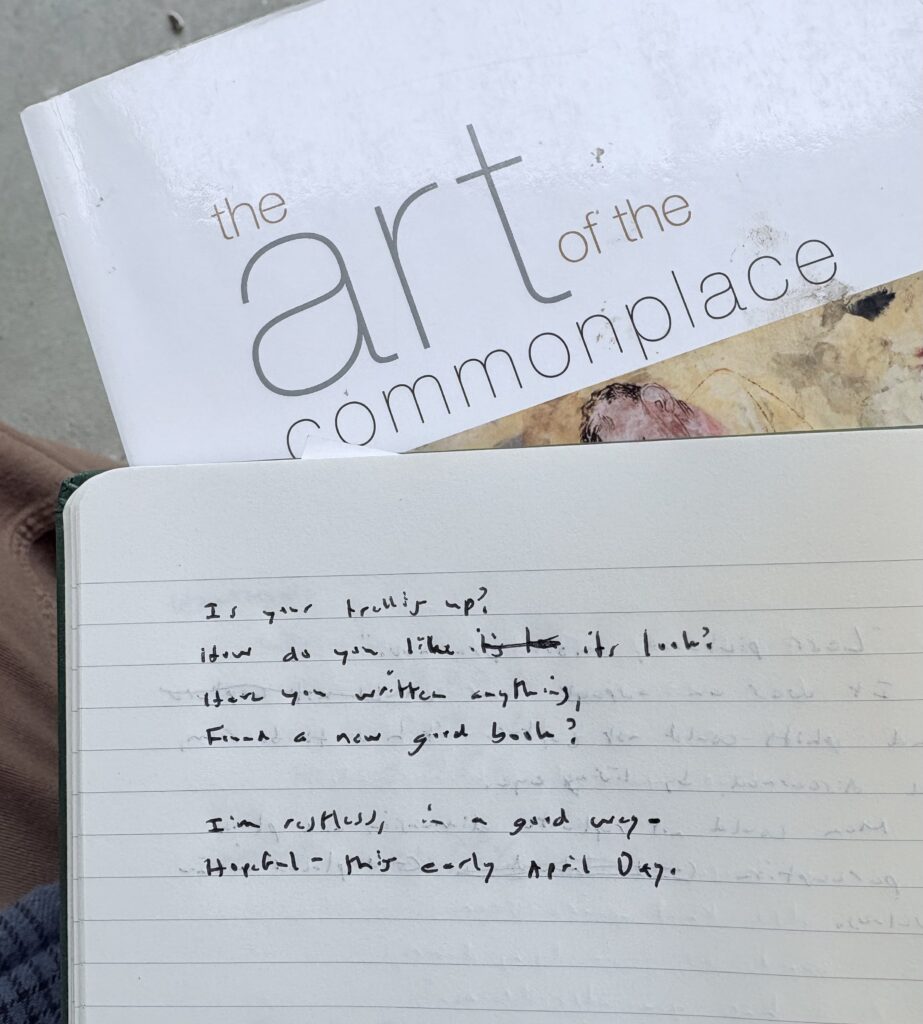 the
art
of the
commonplace
Is your trellis up?
How do you like its look?
Have you written anything,
Found a new good book?
I'm restless, in a good way-
Hopeful - this early April Day.